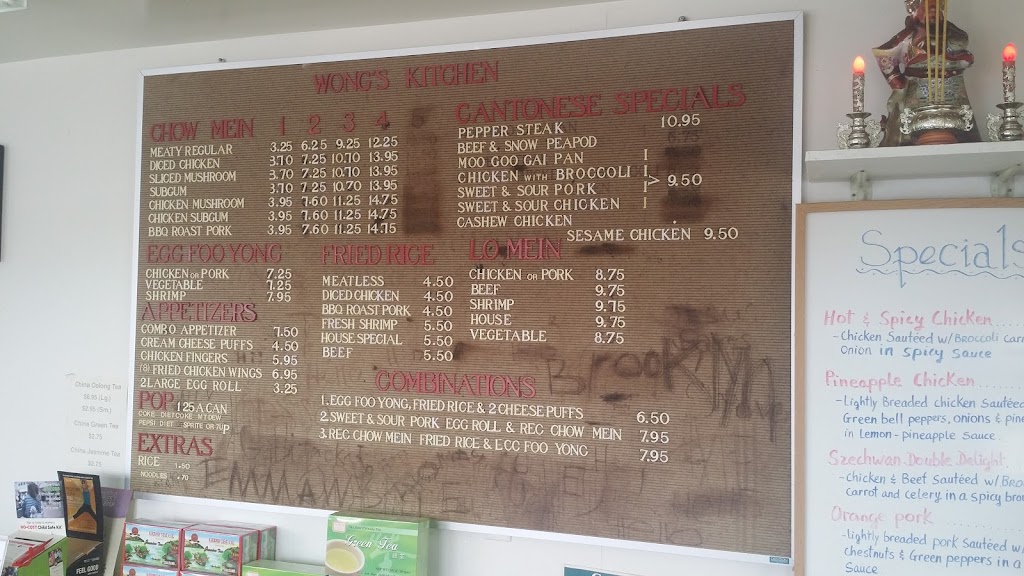 WONG'S KITCHEN
CHOW MEIN 1 2 3 4
MEATY REGULAR 3.25 6.25 9.25 12.25
DICED CHICKEN 3.70 7.25 10.70 13.95
SLICED MUSHROOM 3.70 7.25 10.70 13.95
SUBGUM 3.70 7.25 10.70 13.95
CHICKEN MUSHROOM 3.95 7.60 11.25 14.75
CHICKEN SUBGUM 3.95 7.60 11.25 14.75
BBQ ROAST PORK 3.95 7.60 11.25 14.75
CANTONESE SPECIALS
PEPPER STEAK 10.95
BEEF & SNOW PEAPOD
MOO GOO GAI PAN
CHICKEN WITH BROCCOLI
SWEET & SOUR PORK > 9.50
SWEET & SOUR CHICKEN
CASHEW CHICKEN
SESAME CHICKEN 9.50
EGG FOO YONG
CHICKEN OR PORK 7.25
VEGETABLE 7.25
SHRIMP 7.95
FRIED RICE
MEATLESS 4.50
DICED CHICKEN 4.50
BBQ ROAST PORK 4.50
FRESH SHRIMP 5.50
HOUSE SPECIAL 5.50
BEEF 5.50
LO MEIN
CHICKEN OR PORK 8.75
BEEF 9.75
SHRIMP 9.75
HOUSE 9.75
VEGETABLE 8.75
APPETIZERS
COMBO APPETIZER 7.50
CREAM CHEESE PUFFS 4.50
CHICKEN FINGERS 5.95
(8) FRIED CHICKEN WINGS 6.95
2 LARGE EGG ROLL 3.25
POP 1.25 A CAN
COKE DIET COKE MT DEW
PEPSI DIET SPRITE OR 7UP
EXTRAS
RICE 1.50
NOODLES .70
COMBINATIONS
1. EGG FOO YUNG, FRIED RICE & 2 CHEESE PUFFS 6.50
2. SWEET & SOUR PORK EGG ROLL & REG CHOW MEIN 7.95
3. REG CHOW MEIN FRIED RICE & EGG FOO YONG 7.95
Brooklyn
EMMA
Specials
Hot & Spicy Chicken
- Chicken Sautéed w/ Broccoli
Onion in spicy sauce
Pineapple Chicken
- Lightly Breaded chicken Sautéed
Green bell peppers, onions &
in Lemon-pineapple sauce.
Szechwan Double Delight
- chicken & Beef sautéed w/
Carrot and celery in a spicy
Orange pork
- lightly breaded pork sautéed
chestnuts & Green peppers in a
sauce
China Oolong Tea
$6.95 (Lg.)
$2.95 (Sm.)
China Green Tea
$3.75
China Jasmine Tea
$2.25
Child Safe Kit
FEEL GOOD
Green Tea